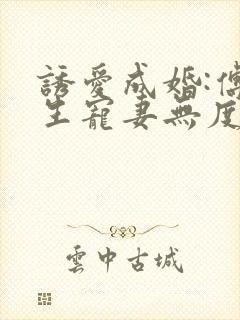 誘愛成婚:傅
生寵妻無度
雲中古城